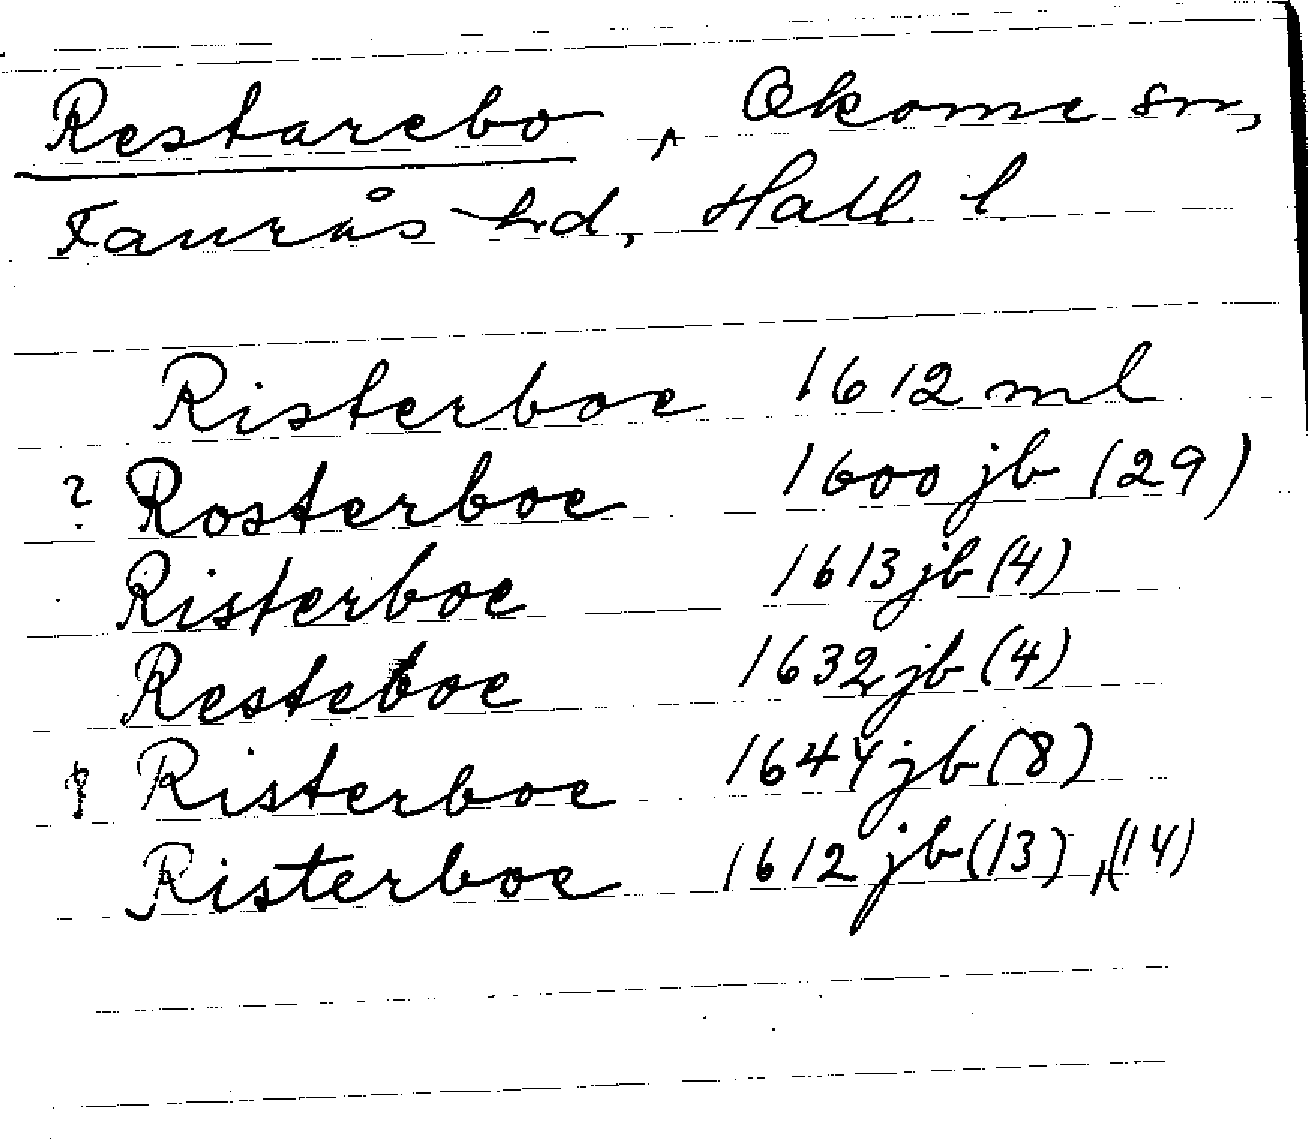 Restarebo, Okome sn,
Faurås hd, Hall l.
Risterboe 1612 ml
? Rosterboe 1600 jb (29)
Risterboe 1613 jb (4)
Resteboe 1632 jb (4)
Risterboe 1644 jb (8)
Risterboe 1612 jb (13), (14)